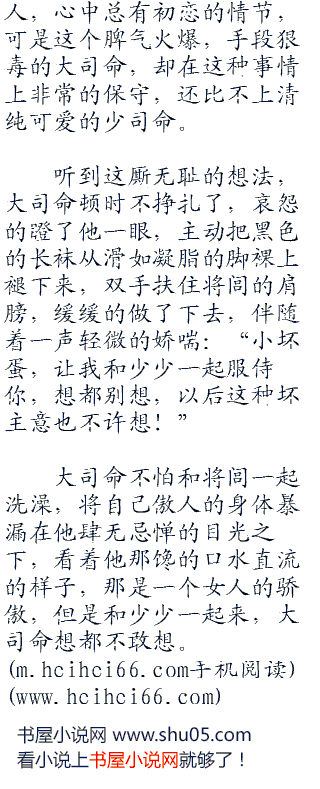 人，心中总有初恋的情节，
可是这个脾气火爆，手段狠
毒的大司命，却在这种事情
上非常的保守，还比不上清
纯可爱的少司命。
听到这厮无耻的想法，
大司命顿时不挣扎了，哀怨
的瞪了他一眼，主动把黑色
的长袜从滑如凝脂的脚裸上
褪下来，双手扶住将闾的肩
膀，缓缓的做了下去，伴随
着一声轻微的娇喘：“小坏
蛋，让我和少少一起服侍
你，想都别想，以后这种坏
主意也不许想！”
大司命不怕和将闾一起
洗澡，将自己傲人的身体暴
漏在他肆无忌惮的目光之
下，看着他那馋的口水直流
的样子，那是一个女人的骄
傲，但是和少少一起来，大
司命想都不敢想。
(m.hcihci66.com手机阅读)
(www.hcihci66.com)
书屋小说网 www.shu05.com
看小说上书屋小说网就够了！